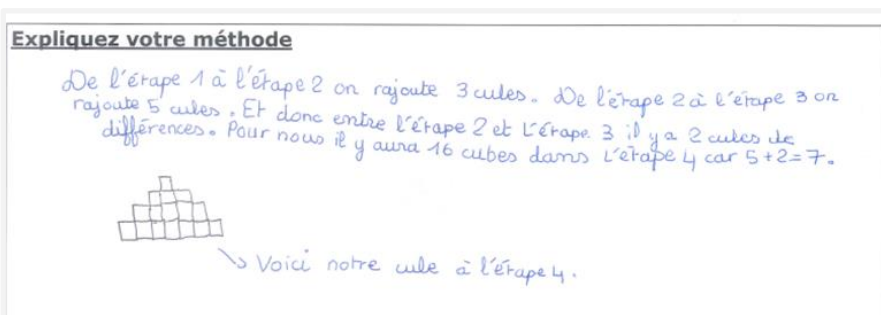 Expliquez votre méthode
De l'étape 1 à l'étape 2 on rajoute 3 cubes. De l'étape 2 à l'étape 3 on
rajoute 5 cubes. Et donc entre l'étape 2 et l'étape 3 il y a 2 cubes de
différences. Pour nous il y aura 16 cubes dans l'étape 4 car 5+2=7.
Voici notre cube à l'étape 4.